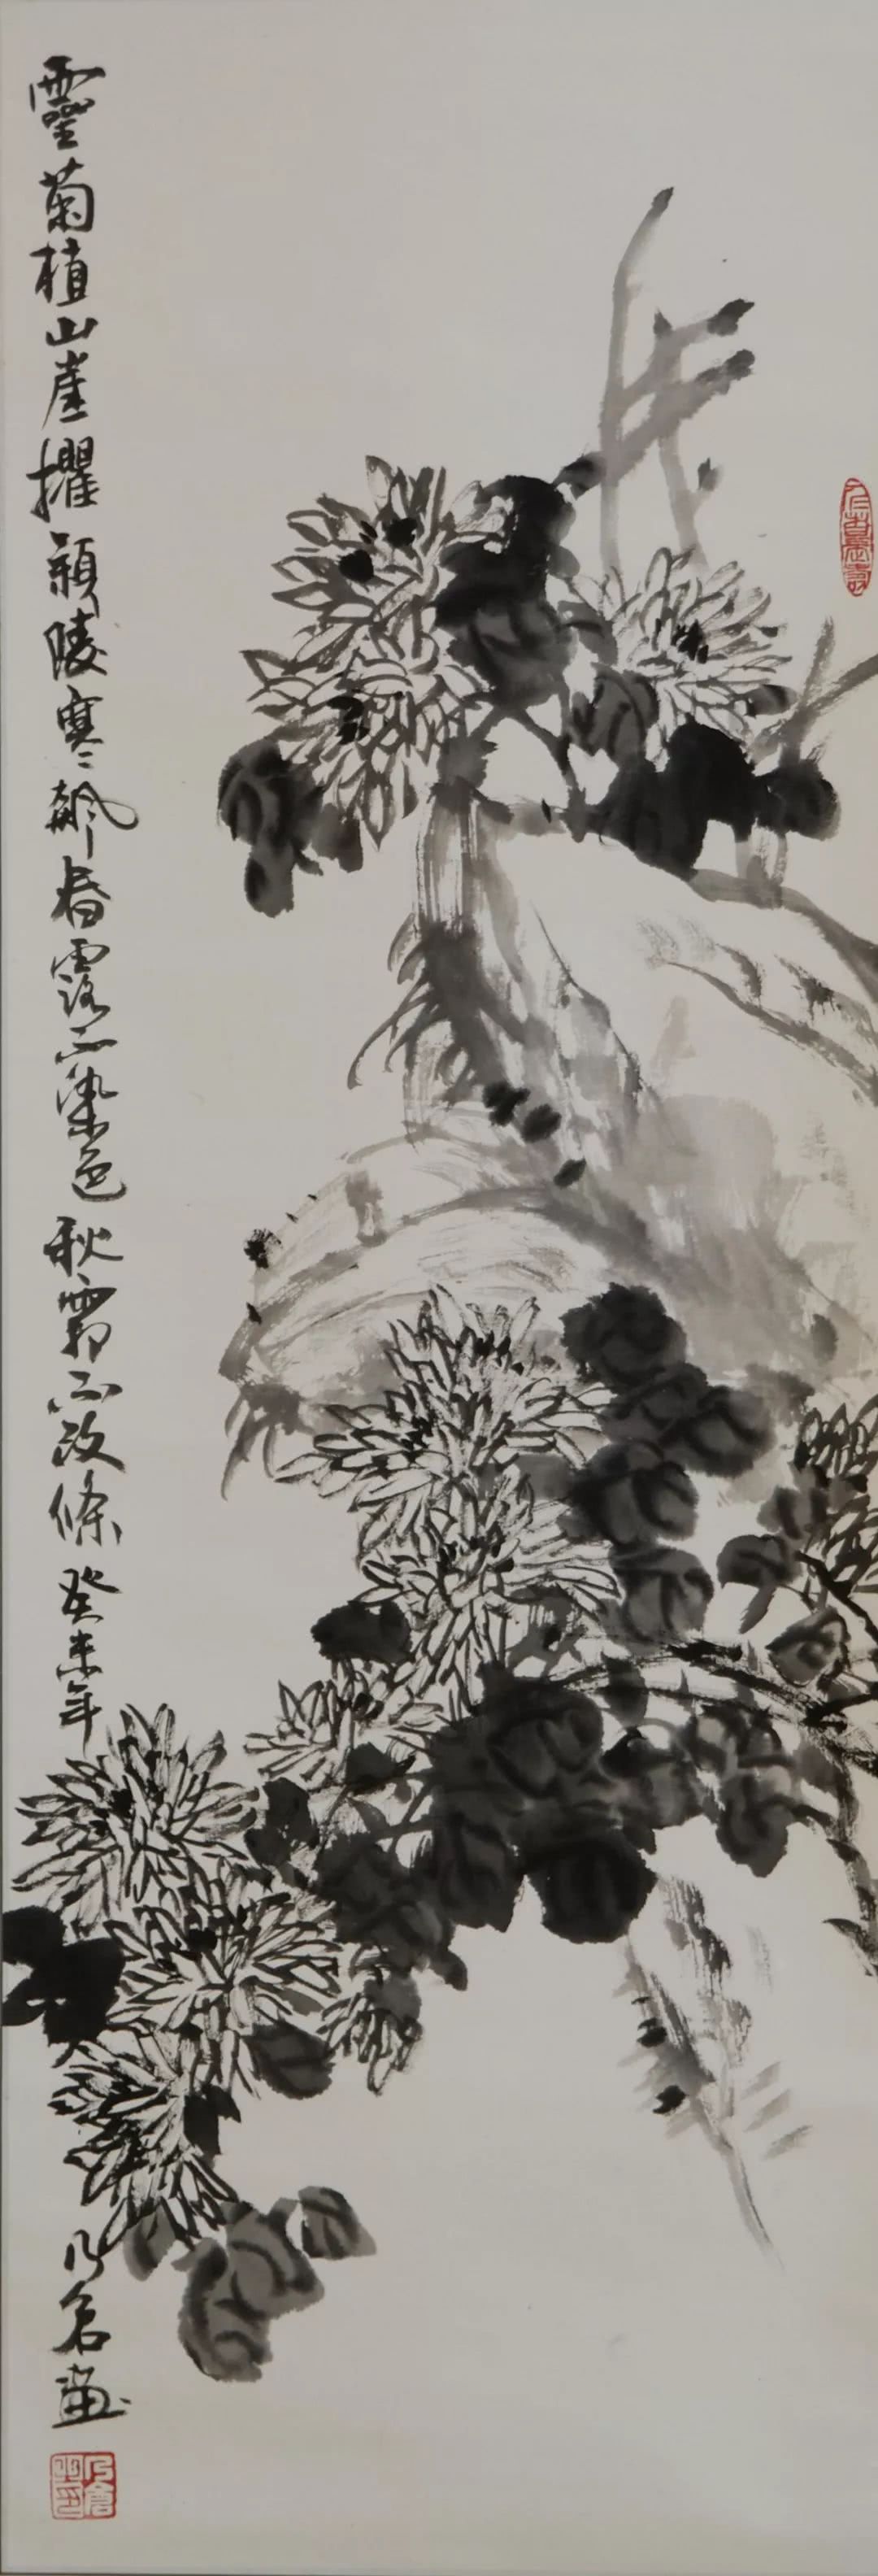 靈菊植山崖擢穎陵寒飆春露不染色秋霜不改條癸未年
乃倉畫